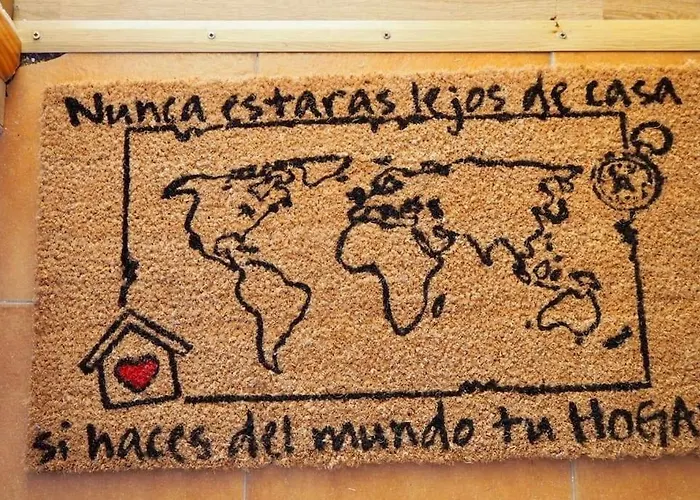 Nunca estaras lejos de casa
si haces del mundo tu HOGA